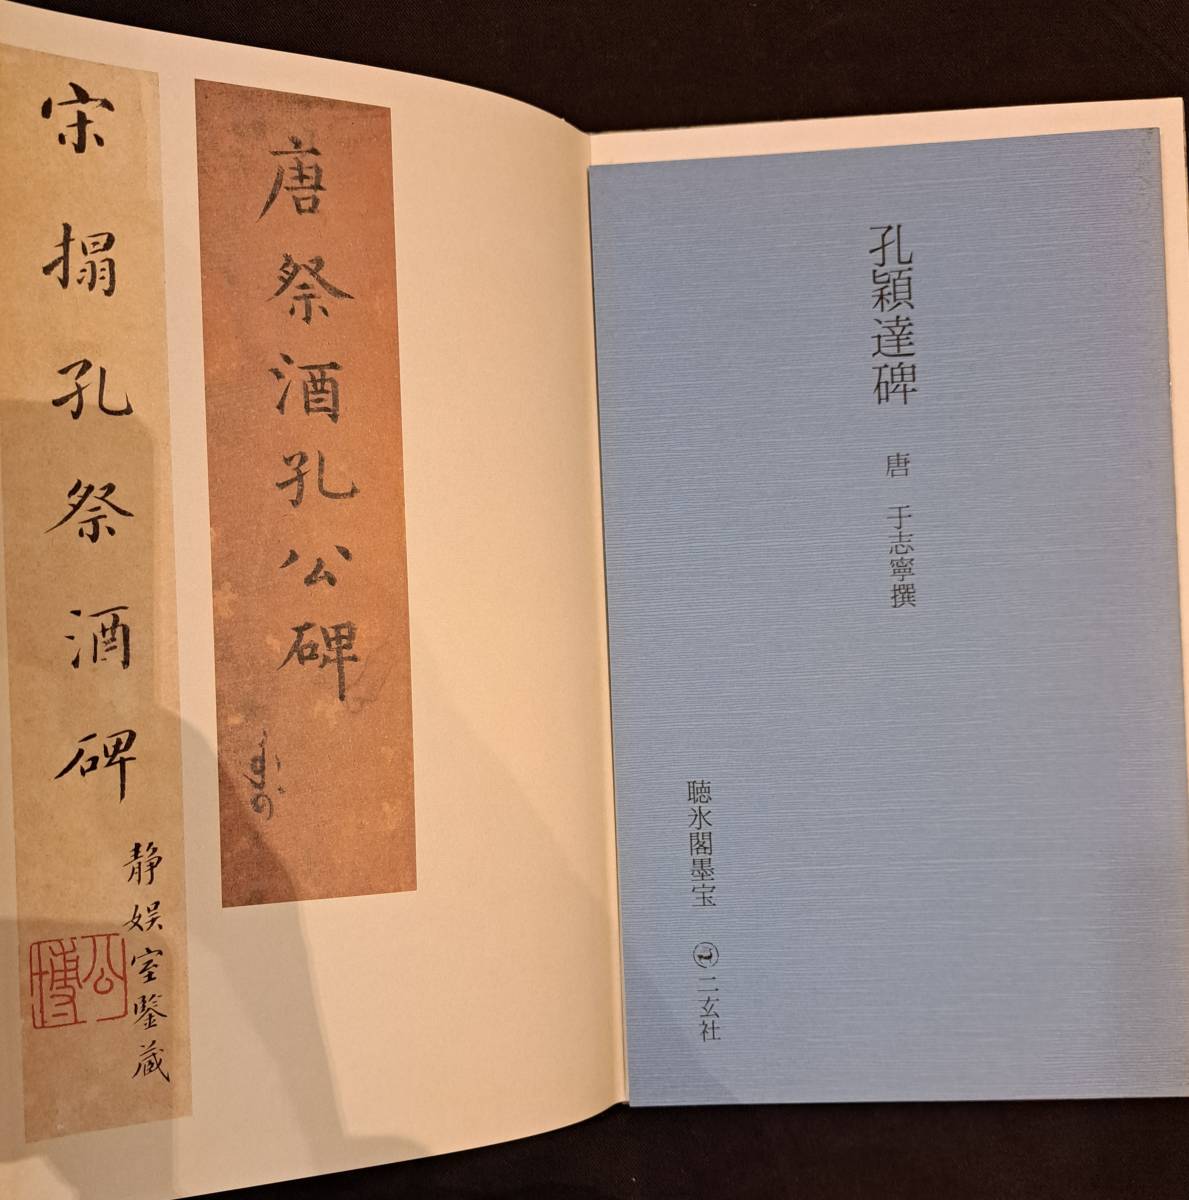 孔穎達碑 唐 于志寧撰
聴氷閣墨宝 二玄社
唐祭酒孔公碑
宋搨孔祭酒碑
静娯室鑒蔵
公博